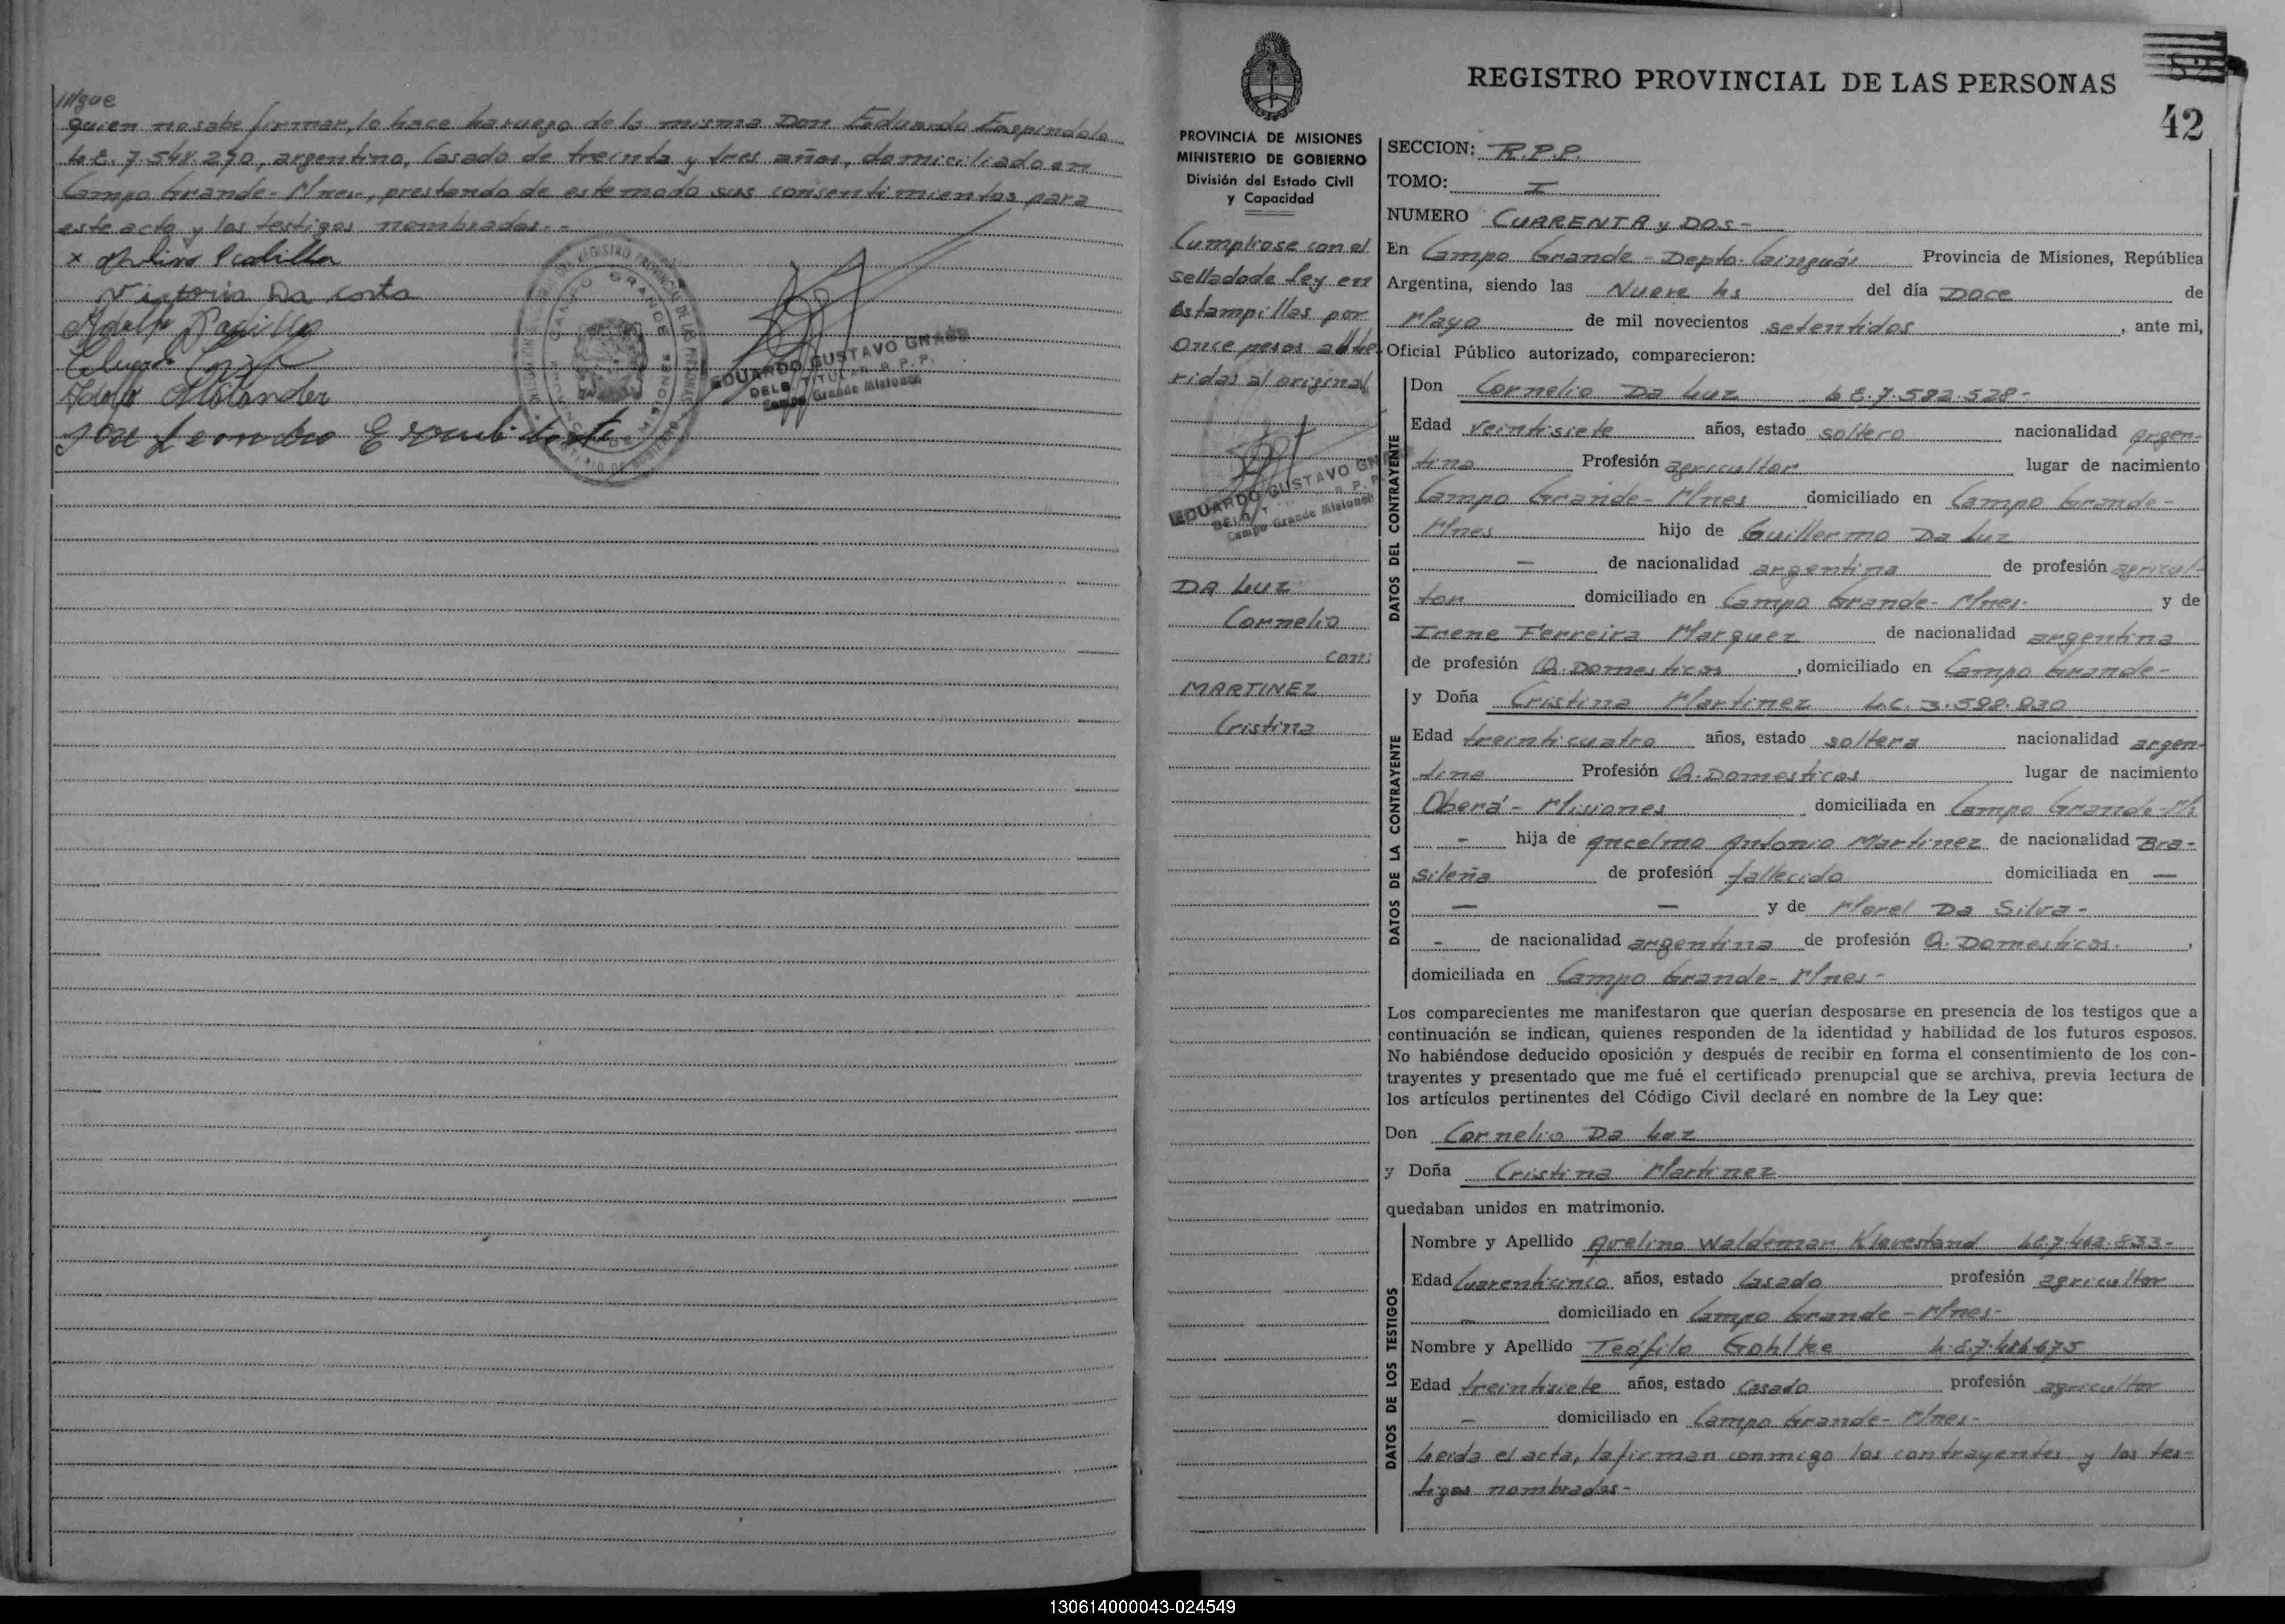 quien no sabe firmar, lo hace a ruego de la misma Don Eduardo Espindola
L.E. 7.548.270, argentino, Casado de treinta y tres años, domiciliado en
Campo Grande- Mnes., prestando de este modo sus consentimientos para
este acto y los testigos nombrados.-
Victoria Da Costa
EDUARDO GUSTAVO GNASS
DELEG. TITULAR R.P.P.
Campo Grande Misiones
REGISTRO PROVINCIAL DE LAS PERSONAS
42
PROVINCIA DE MISIONES
MINISTERIO DE GOBIERNO
División del Estado Civil
y Capacidad
Cumpliose con el
sellado de ley en
Estampillas por
Once pesos adhe
ridas al original
EDUARDO GUSTAVO GNASS
Campo Grande Misiones
DA LUZ
Cornelio
con:
MARTINEZ
Cristina
SECCION: R.P.P.
TOMO: I
NUMERO CUARENTA y DOS-
En Campo Grande - Depto. Cainguás Provincia de Misiones, República
Argentina, siendo las Nueve hs del día Doce de
Mayo de mil novecientos setentidos, ante mi,
Oficial Público autorizado, comparecieron:
DATOS DEL CONTRAYENTE
Don Cornelio Da Luz L.E. 7.582.528-
Edad veintisiete años, estado soltero nacionalidad argen-
tina Profesión agricultor lugar de nacimiento
Campo Grande- Mnes domiciliado en Campo Grande-
Mnes hijo de Guillermo Da Luz
- de nacionalidad argentina de profesión agricul-
tor domiciliado en Campo Grande- Mnes- y de
Irene Ferreira Marquez de nacionalidad argentina
de profesión Q. Domesticos, domiciliado en Campo Grande-
DATOS DE LA CONTRAYENTE
y Doña Cristina Martinez L.C. 3.598.830
Edad treinticuatro años, estado soltera nacionalidad argen-
tina Profesión Q. Domesticos lugar de nacimiento
Oberá - Misiones domiciliada en Campo Grande-
- hija de Ancelmo Antonio Martinez de nacionalidad Bra-
sileña de profesión fallecido domiciliada en -
- - y de Morel Da Silva-
- de nacionalidad argentina de profesión Q. Domesticos.,
domiciliada en Campo Grande- Mnes-
Los comparecientes me manifestaron que querían desposarse en presencia de los testigos que a
continuación se indican, quienes responden de la identidad y habilidad de los futuros esposos.
No habiéndose deducido oposición y después de recibir en forma el consentimiento de los con-
trayentes y presentado que me fué el certificado prenupcial que se archiva, previa lectura de
los artículos pertinentes del Código Civil declaré en nombre de la Ley que:
Don Cornelio Da Luz
y Doña Cristina Martinez
quedaban unidos en matrimonio.
DATOS DE LOS TESTIGOS
Nombre y Apellido Avelino Waldemar Klavestand L.E. 7.462.833-
Edad Cuarenticinco años, estado Casado profesión agricultor
- domiciliado en Campo Grande - Mnes-
Nombre y Apellido Teófilo Gohlke L.E. 7.486.675
Edad treintisiete años, estado Casado profesión agricultor
- domiciliado en Campo Grande- Mnes-
Leida el acta, la firman conmigo los contrayentes y los tes-
tigos nombrados-
130614000043-024549